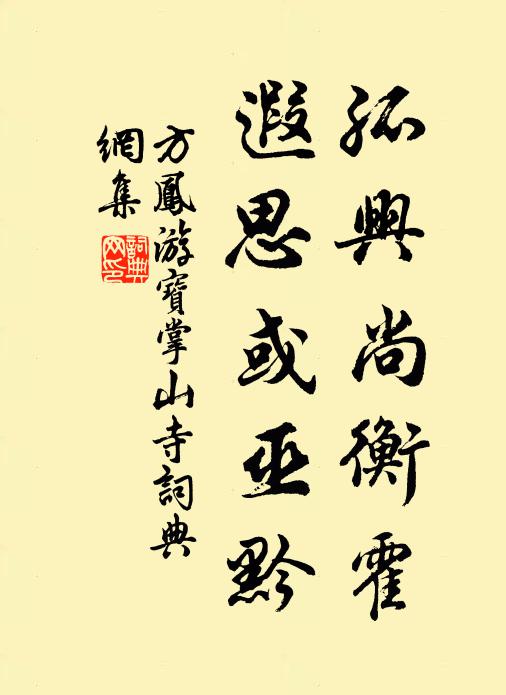 孤興尚衡霍
遐思或巫黔
方鳳游寶掌山寺詞典
網集
詞典網印